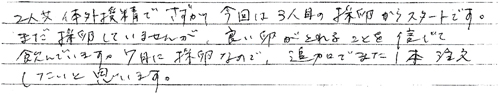 2人共体外授精でさずかり今回は3人目の採卵からスタートです。
まだ採卵していませんが、良い卵がとれることを信じて
飲んでいます。7月に採卵なので、追加でまた1本注文
したいと思います。